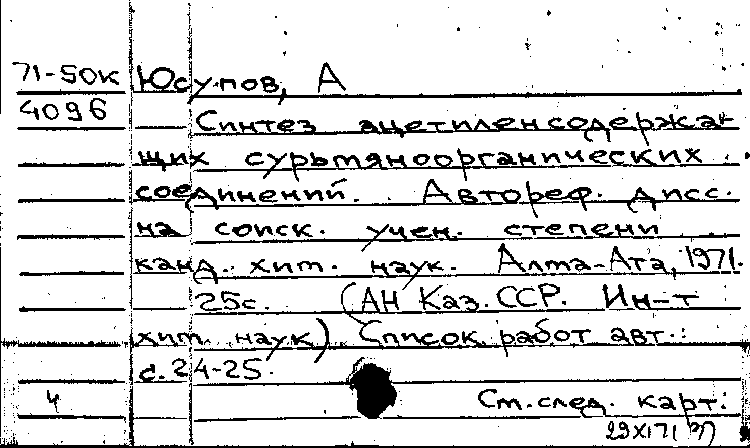 71-50к Юсупов, А
4096 Синтез ацетиленсодержа-
щих сурьмяноорганических
соединений. Автореф. дисс.
на соиск. учен. степени
канд. хим. наук. Алма-Ата, 1971.
25с. (АН Каз.ССР. Ин-т
хим. наук) Список работ авт.:
с.24-25.
4 См.след. карт.